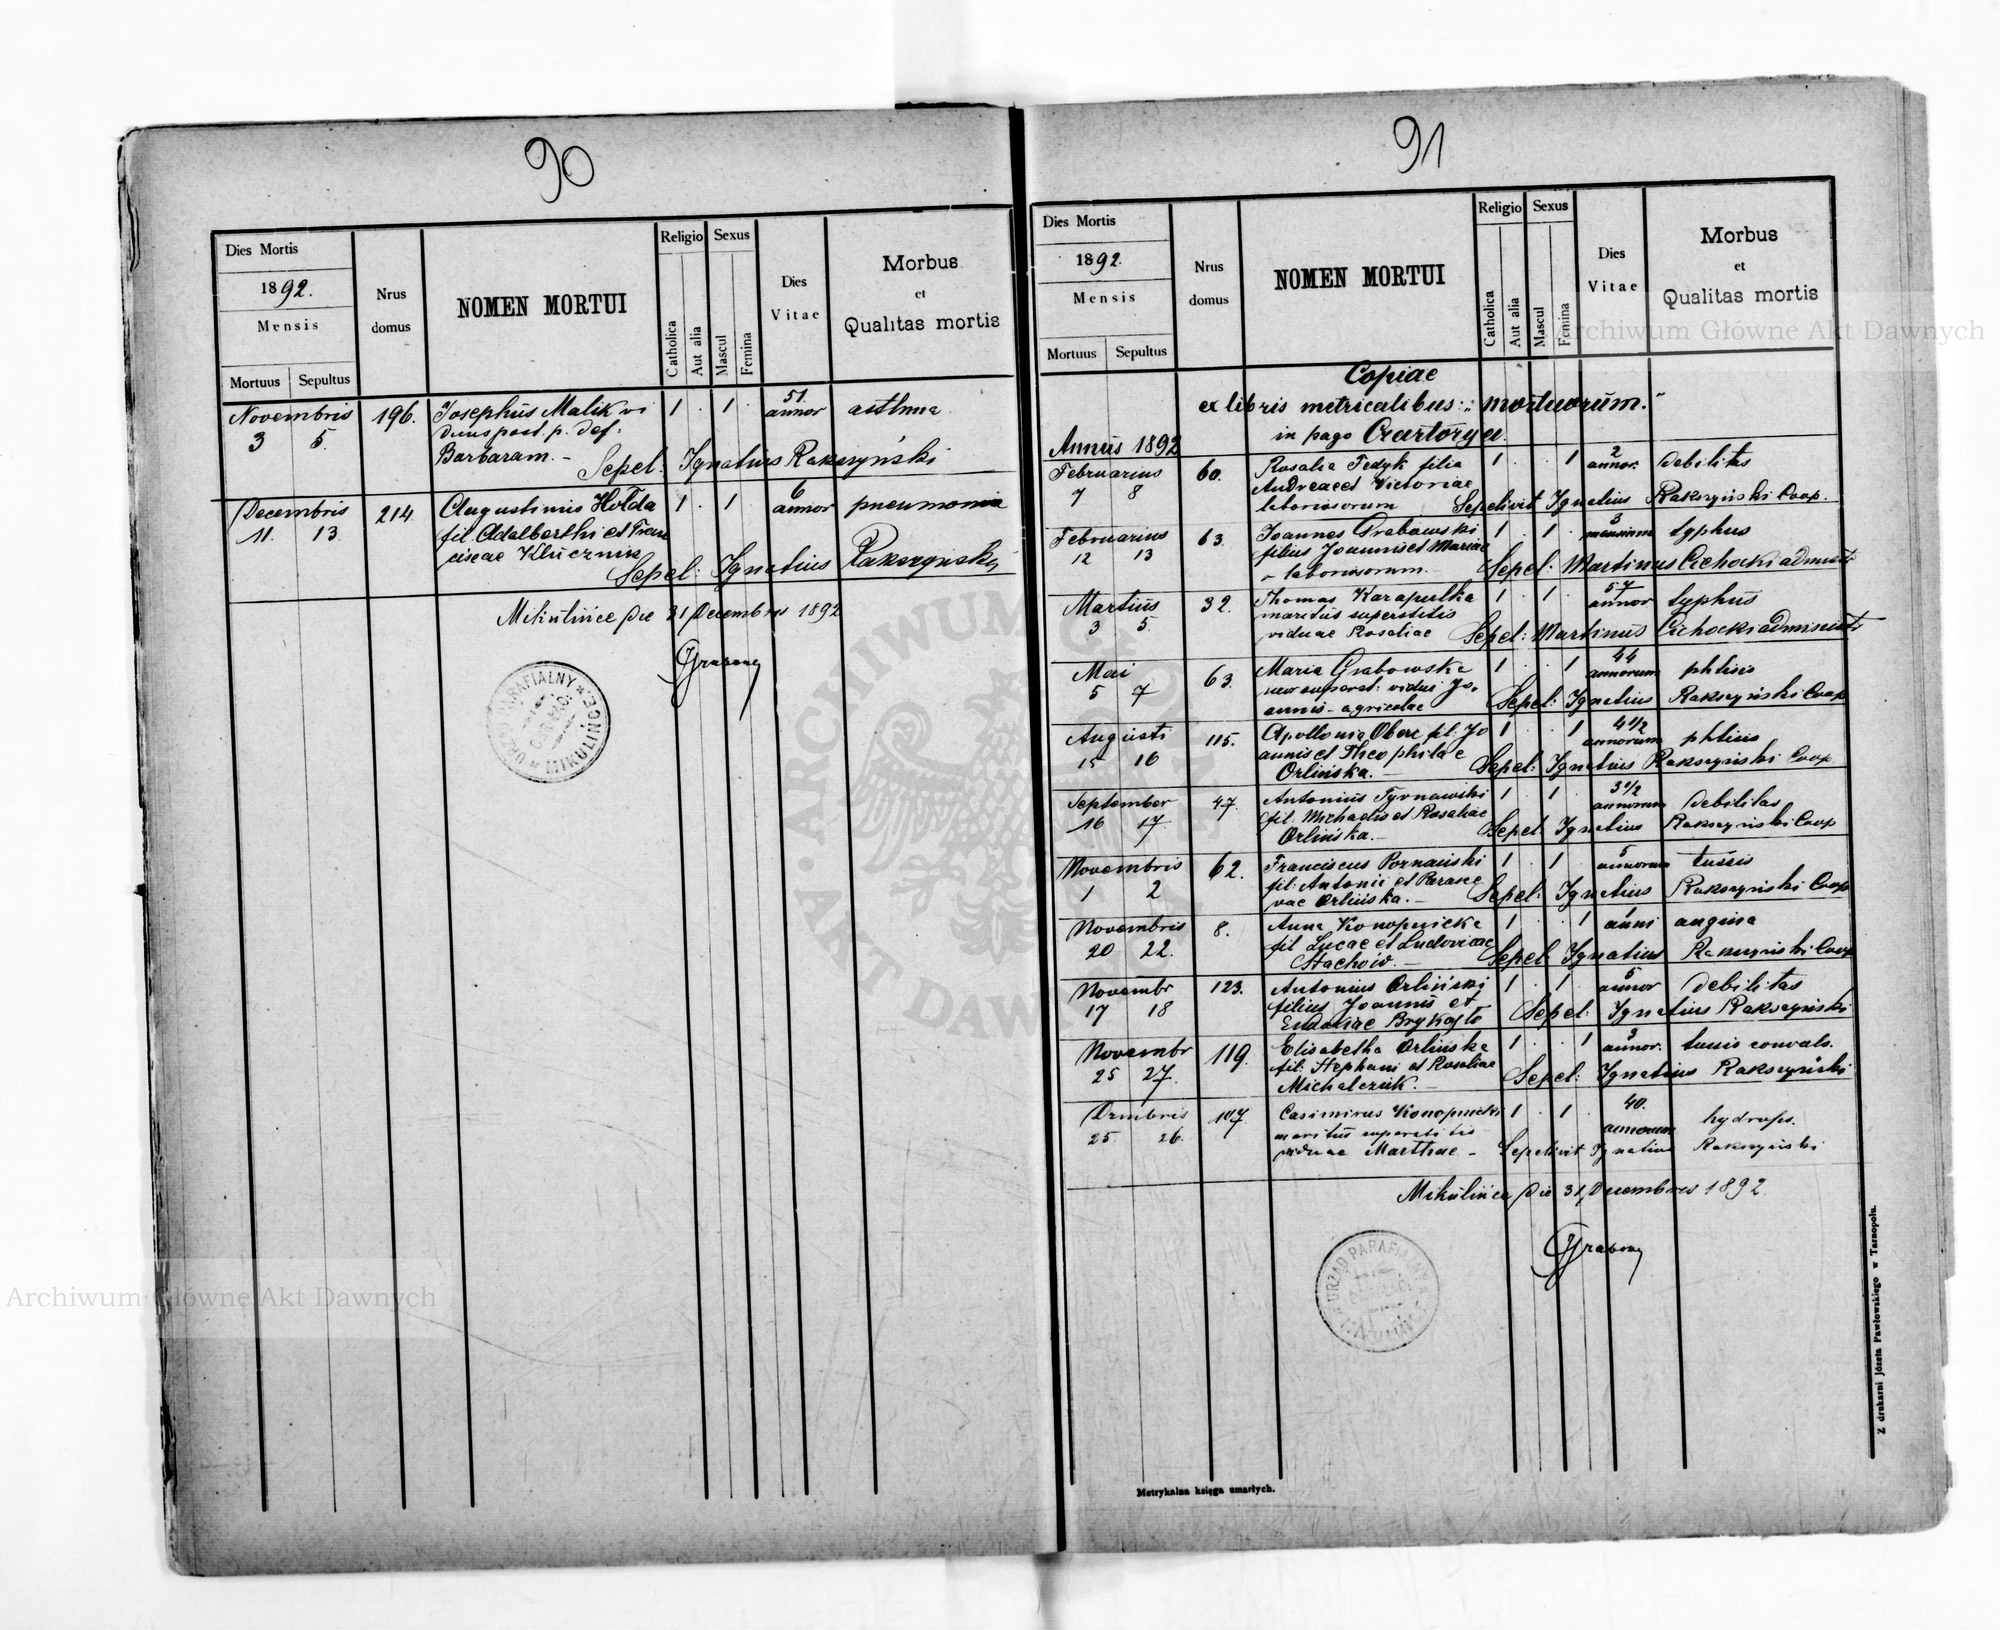 90
Dies Mortis
1892.
Mensis
Mortuus Sepultus
Nrus
domus
NOMEN MORTUI
Religio
Catholica
Aut alia
Sexus
Mascul
Femina
Dies
Vitae
Morbus
et
Qualitas mortis
Novembris 196. Josephus Malik vi 1 . 1 . 51 asthma
3 5. duus post. p. def. annor
Barbaram. – Sepel: Ignatius Rakszyński
Decembris 214. Augustinus Hołda 1 . 1 6 pneumonia
11. 13. fil. Adalberthi et Fran annor
ciscae Klucznik
Sepel: Ignatius Rakszyński
Mikulińce die 31 Decembris 1892
URZĄD PARAFIALNY MIKULIŃCE
91
Dies Mortis
1892.
Mensis
Mortuus Sepultus
Nrus
domus
NOMEN MORTUI
Religio
Catholica
Aut alia
Sexus
Mascul
Femina
Dies
Vitae
Morbus
et
Qualitas mortis
Copiae
ex libris metricalibus: „mortuorum."
in pago Czartorya.
Annus 1892
Februarius 60. Rosalia Fedyk filia 1 . . 1 2 debilitas
7 8 Andreae et Victoriae annor.
laboriosorum Sepelivit Ignatius Rakszyński Coop.
Februarius 63. Joannes Grabowski 1 . 1 . 3 typhus
12 13 filius Joannis et Mariae mensium
laboriosorum. Sepel: Martinus Cichocki administ
Martius 32. Thomas Karapulka 1 . 1 . 57 typhus
3 5. maritus superstitis annor
viduae Rosaliae Sepel: Martinus Cichocki administ
Mai 63. Maria Grabowska 1 . . 1 44 phtisis
5 7 uxor superst: vidui Jo annorum
annis – agricolae Sepel: Ignatius Rakszyński Coop
Augusti 115. Apollonia Obere fil: Jo 1 . . 1 4 1/2 phtisis
15 16 annis et Theophilae annorum
Orlińska. – Sepel: Ignatius Rakszyński Coop
September 47. Antonius Tyrnawski 1 . 1 . 3 1/2 debilitas
16 17. fil: Michaelis et Rosaliae annorum
Orlińska. – Sepel: Ignatius Rakszyński Coop
Novembris 62. Franciscus Poznański 1 . 1 5 tussis
1 2 fil: Antonii et Parasce annorum
vae Orlińska. – Sepel: Ignatius Rakszyński Coop
Novembris 8. Anna Konopnicka 1 . . 1 1 angina
20 22. fil Lucae et Ludovicae anni
Stachów. – Sepel: Ignatius Rakszyński Coop
Novembr 123. Antonius Orliński 1 . 1 . 5 debilitas
17 18 filius Joannis et annor
Eudoxiae Sepel: Ignatius Rakszyński
Novembr 119. Elisabetha Orlińska 1 . . 1 3 tussis convuls.
25 27. fil: Stephani et Rosaliae annor.
Michalczuk. – Sepel: Ignatius Rakszyński
Dzmbris 107. Casimirus Konopnicki 1 . 1 . 40. hydrops.
25 26. maritus superstitis annorum
viduae Marthae – Sepelivit Ignatius Rakszyński
Mikulińce die 31 Decembris 1892
URZĄD PARAFIALNY
Metrykalna księga umarłych.
Z drukarni Józefa Pawłowskiego w Tarnopolu.
ARCHIWUM GŁÓWNE AKT DAWNYCH
Archiwum Główne Akt Dawnych
Archiwum Główne Akt Dawnych